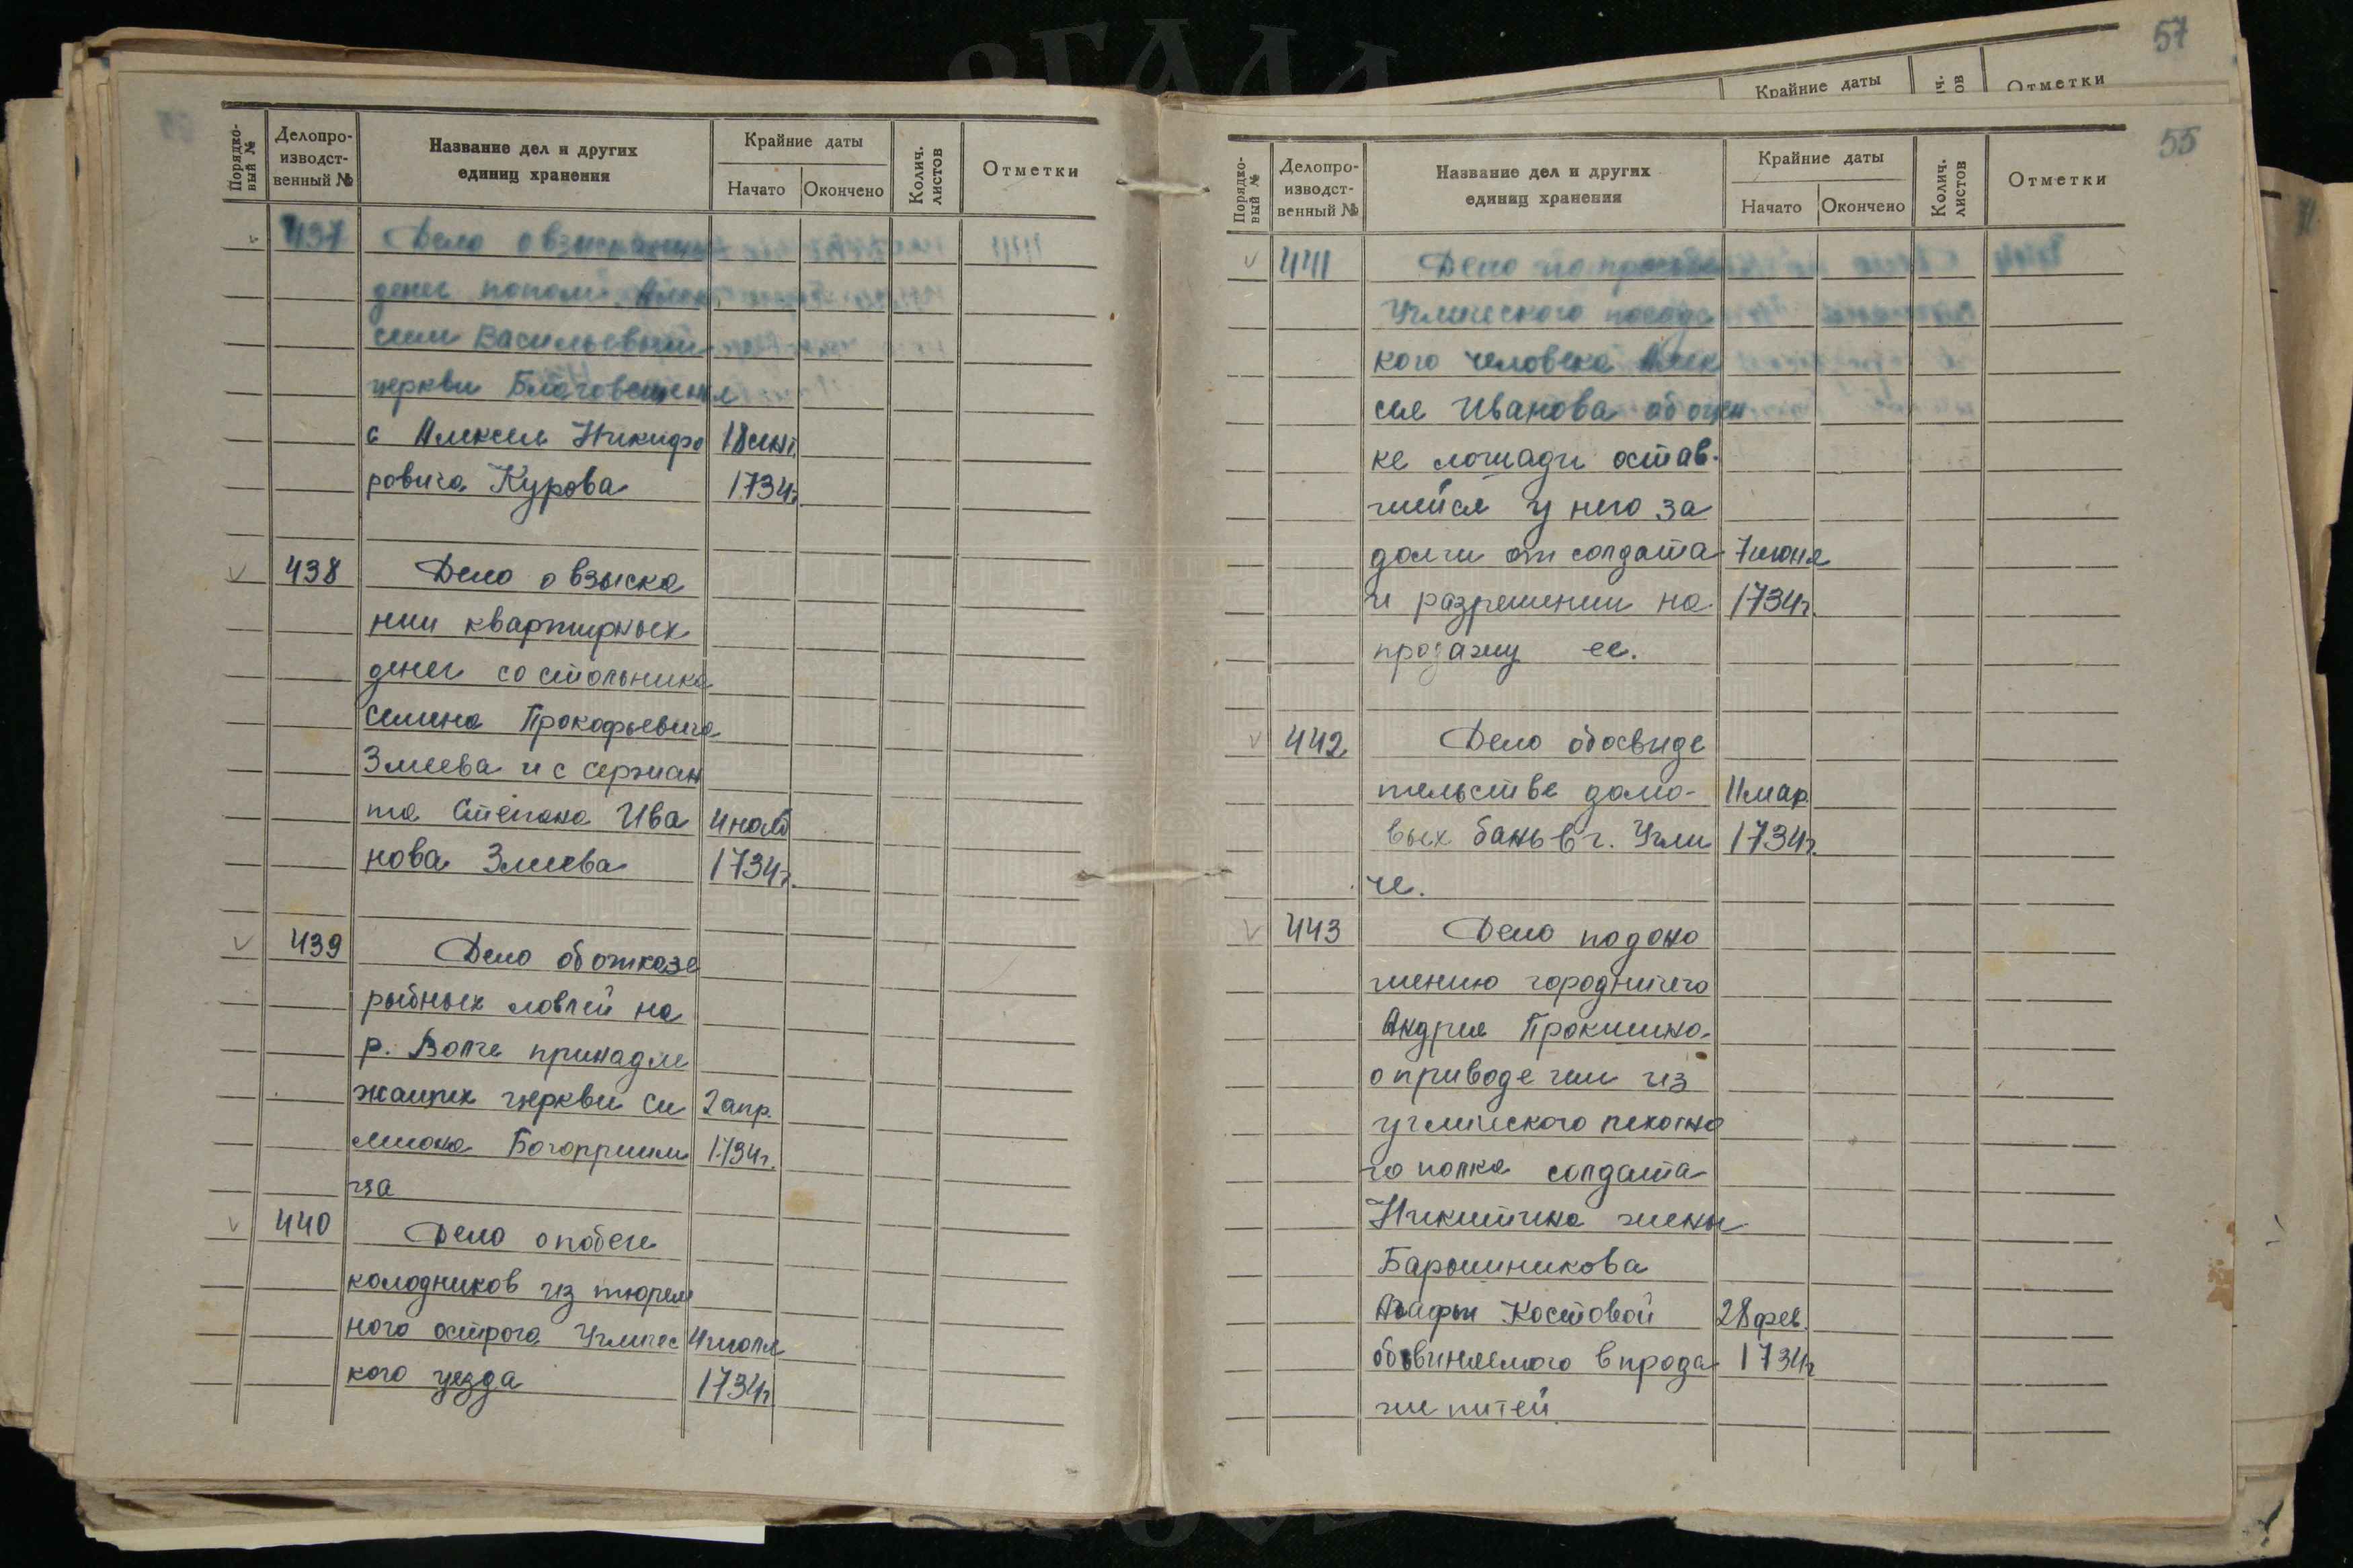 57
Крайние даты
Отметки
Порядко-
вый №
Делопро-
изводст-
венный №
Название дел и других
единиц хранения
Крайние даты
Начато
Окончено
Колич.
листов
Отметки
437 Дело о взыскании
денег попом Алек
сеем Васильевым
церкви Благовещения
с Алексея Никифо 18 сент.
ровича Курова 1734г.
438 Дело о взыска
нии квартирных
денег со стольника
Семена Прокофьевича
Змеева и с сержан
та Степана Ива 4 нояб
нова Змеева 1734г.
439 Дело об отказе
рыбных ловлей на
р. Волге принадле
жащих церкви Си 2 апр.
меона Богоприим 1734г.
ца
440 Дело о побеге
колодников из тюрем
ного острога Угличес 4 июля
кого уезда 1734г
55
Порядко-
вый №
Делопро-
изводст-
венный №
Название дел и других
единиц хранения
Крайние даты
Начато
Окончено
Колич.
листов
Отметки
441 Дело по
Угличского посадс
кого человека Алек
сея Иванова об оцен
ке лошади остав-
шейся у него за
долги от солдата 7 июня
и разрешении на 1734г.
продажу ее.
442 Дело об освиде
тельстве домо- 11 мар.
вых бань в г. Угли 1734г.
че.
443 Дело по доно
шению городничего
Андрея Прокшина
о приводе им из
угличского пехотно
го полка солдата
Никитина жены
Барышникова
Агафьи Костовой 28 фев.
обвиняемого в прода 1734г
же питей